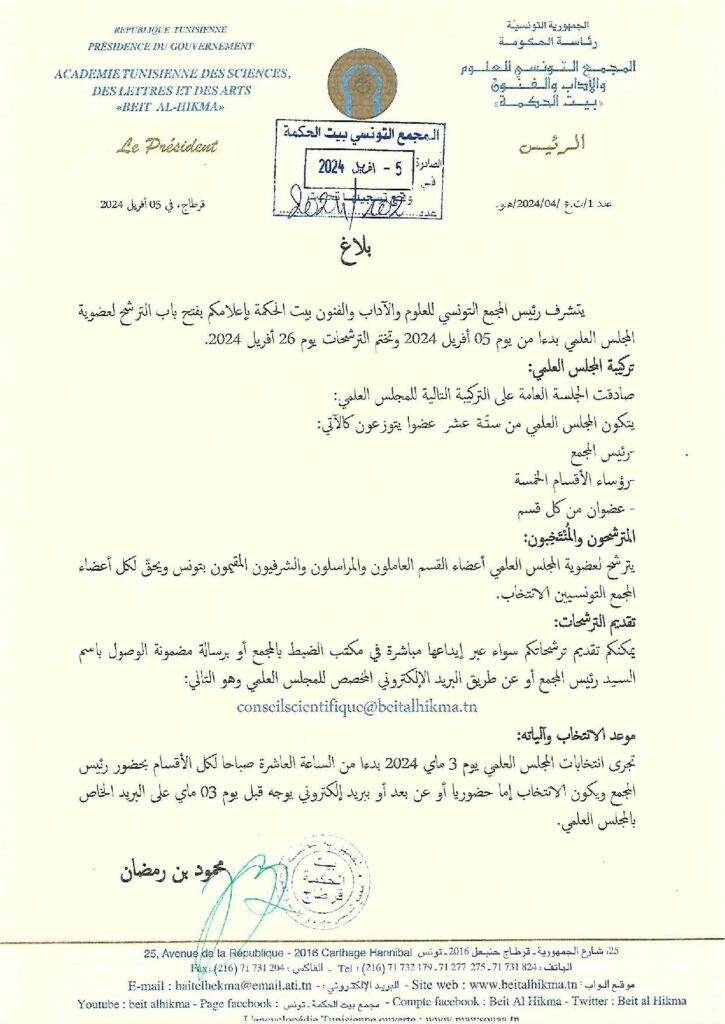 REPUBLIQUE TUNISIENNE
PRÉSIDENCE DU GOUVERNEMENT
ACADEMIE TUNISIENNE DES SCIENCES,
DES LETTRES ET DES ARTS
«BEIT AL-HIKMA»
Le Président
الجمهورية التونسيّة
رئاسة الحكومة
المجمع التونسي للعلوم
والآداب والفنون
«بيت الحكمة»
الرئيس
المجمع التونسي بيت الحكمة
الصادرة
5 - افريل 2024
في
عدد
قرطاج، في 05 أفريل 2024
عدد 1/ت.ع /2024/04/هو.
بلاغ
يتشرف رئيس المجمع التونسي للعلوم والآداب والفنون بيت الحكمة بإعلامكم بفتح باب الترشح لعضوية
المجلس العلمي بدءا من يوم 05 أفريل 2024 وتختم الترشحات يوم 26 أفريل 2024.
تركيبة المجلس العلمي:
صادقت الجلسة العامة على التركيبة التالية للمجلس العلمي:
يتكون المجلس العلمي من ستّة عشر عضوا يتوزعون كالآتي:
-رئيس المجمع
-رؤساء الأقسام الخمسة
- عضوان من كل قسم
المترشحون والمُنْتَخِبون:
يترشح لعضوية المجلس العلمي أعضاء القسم العاملون والمراسلون والشرفيون المقيمون بتونس ويحقّ لكل أعضاء
المجمع التونسيين الانتخاب.
تقديم الترشحات:
يمكنكم تقديم ترشحاتكم سواء عبر إيداعها مباشرة في مكتب الضبط بالمجمع أو برسالة مضمونة الوصول باسم
السيد رئيس المجمع أو عن طريق البريد الإلكتروني المخصص للمجلس العلمي وهو التالي:
conseilscientifique@beitalhikma.tn
موعد الانتخاب وآلياته:
تجرى انتخابات المجلس العلمي يوم 3 ماي 2024 بدءا من الساعة العاشرة صباحا لكل الأقسام بحضور رئيس
المجمع ويكون الانتخاب إما حضوريا أو عن بعد أو ببريد إلكتروني يوجه قبل يوم 03 ماي على البريد الخاص
بالمجلس العلمي.
محمود بن رمضان
بيت
الحكمة
قرطاج
25, Avenue de la République - 2016 Carthage Hannibal 25، شارع الجمهورية - قرطاج حنبعل 2016ـ تونس
Fax : (216) 71 731 204 : الفاكس - Tel : (216) 71 732 179 - 71 277 275 - 71 731 824 : الهاتف
E-mail : baitelhekma@email.ati.tn : البريد الإلكتروني - Site web : www.beitalhikma.tn : موقع الواب
Youtube : beit alhikma - Page facebook : مجمع بيت الحكمة ـ تونس - Compte facebook : Beit Al Hikma - Twitter : Beit al Hikma
L'encyclopédie Tunisienne ouverte : www.mawsouaa.tn